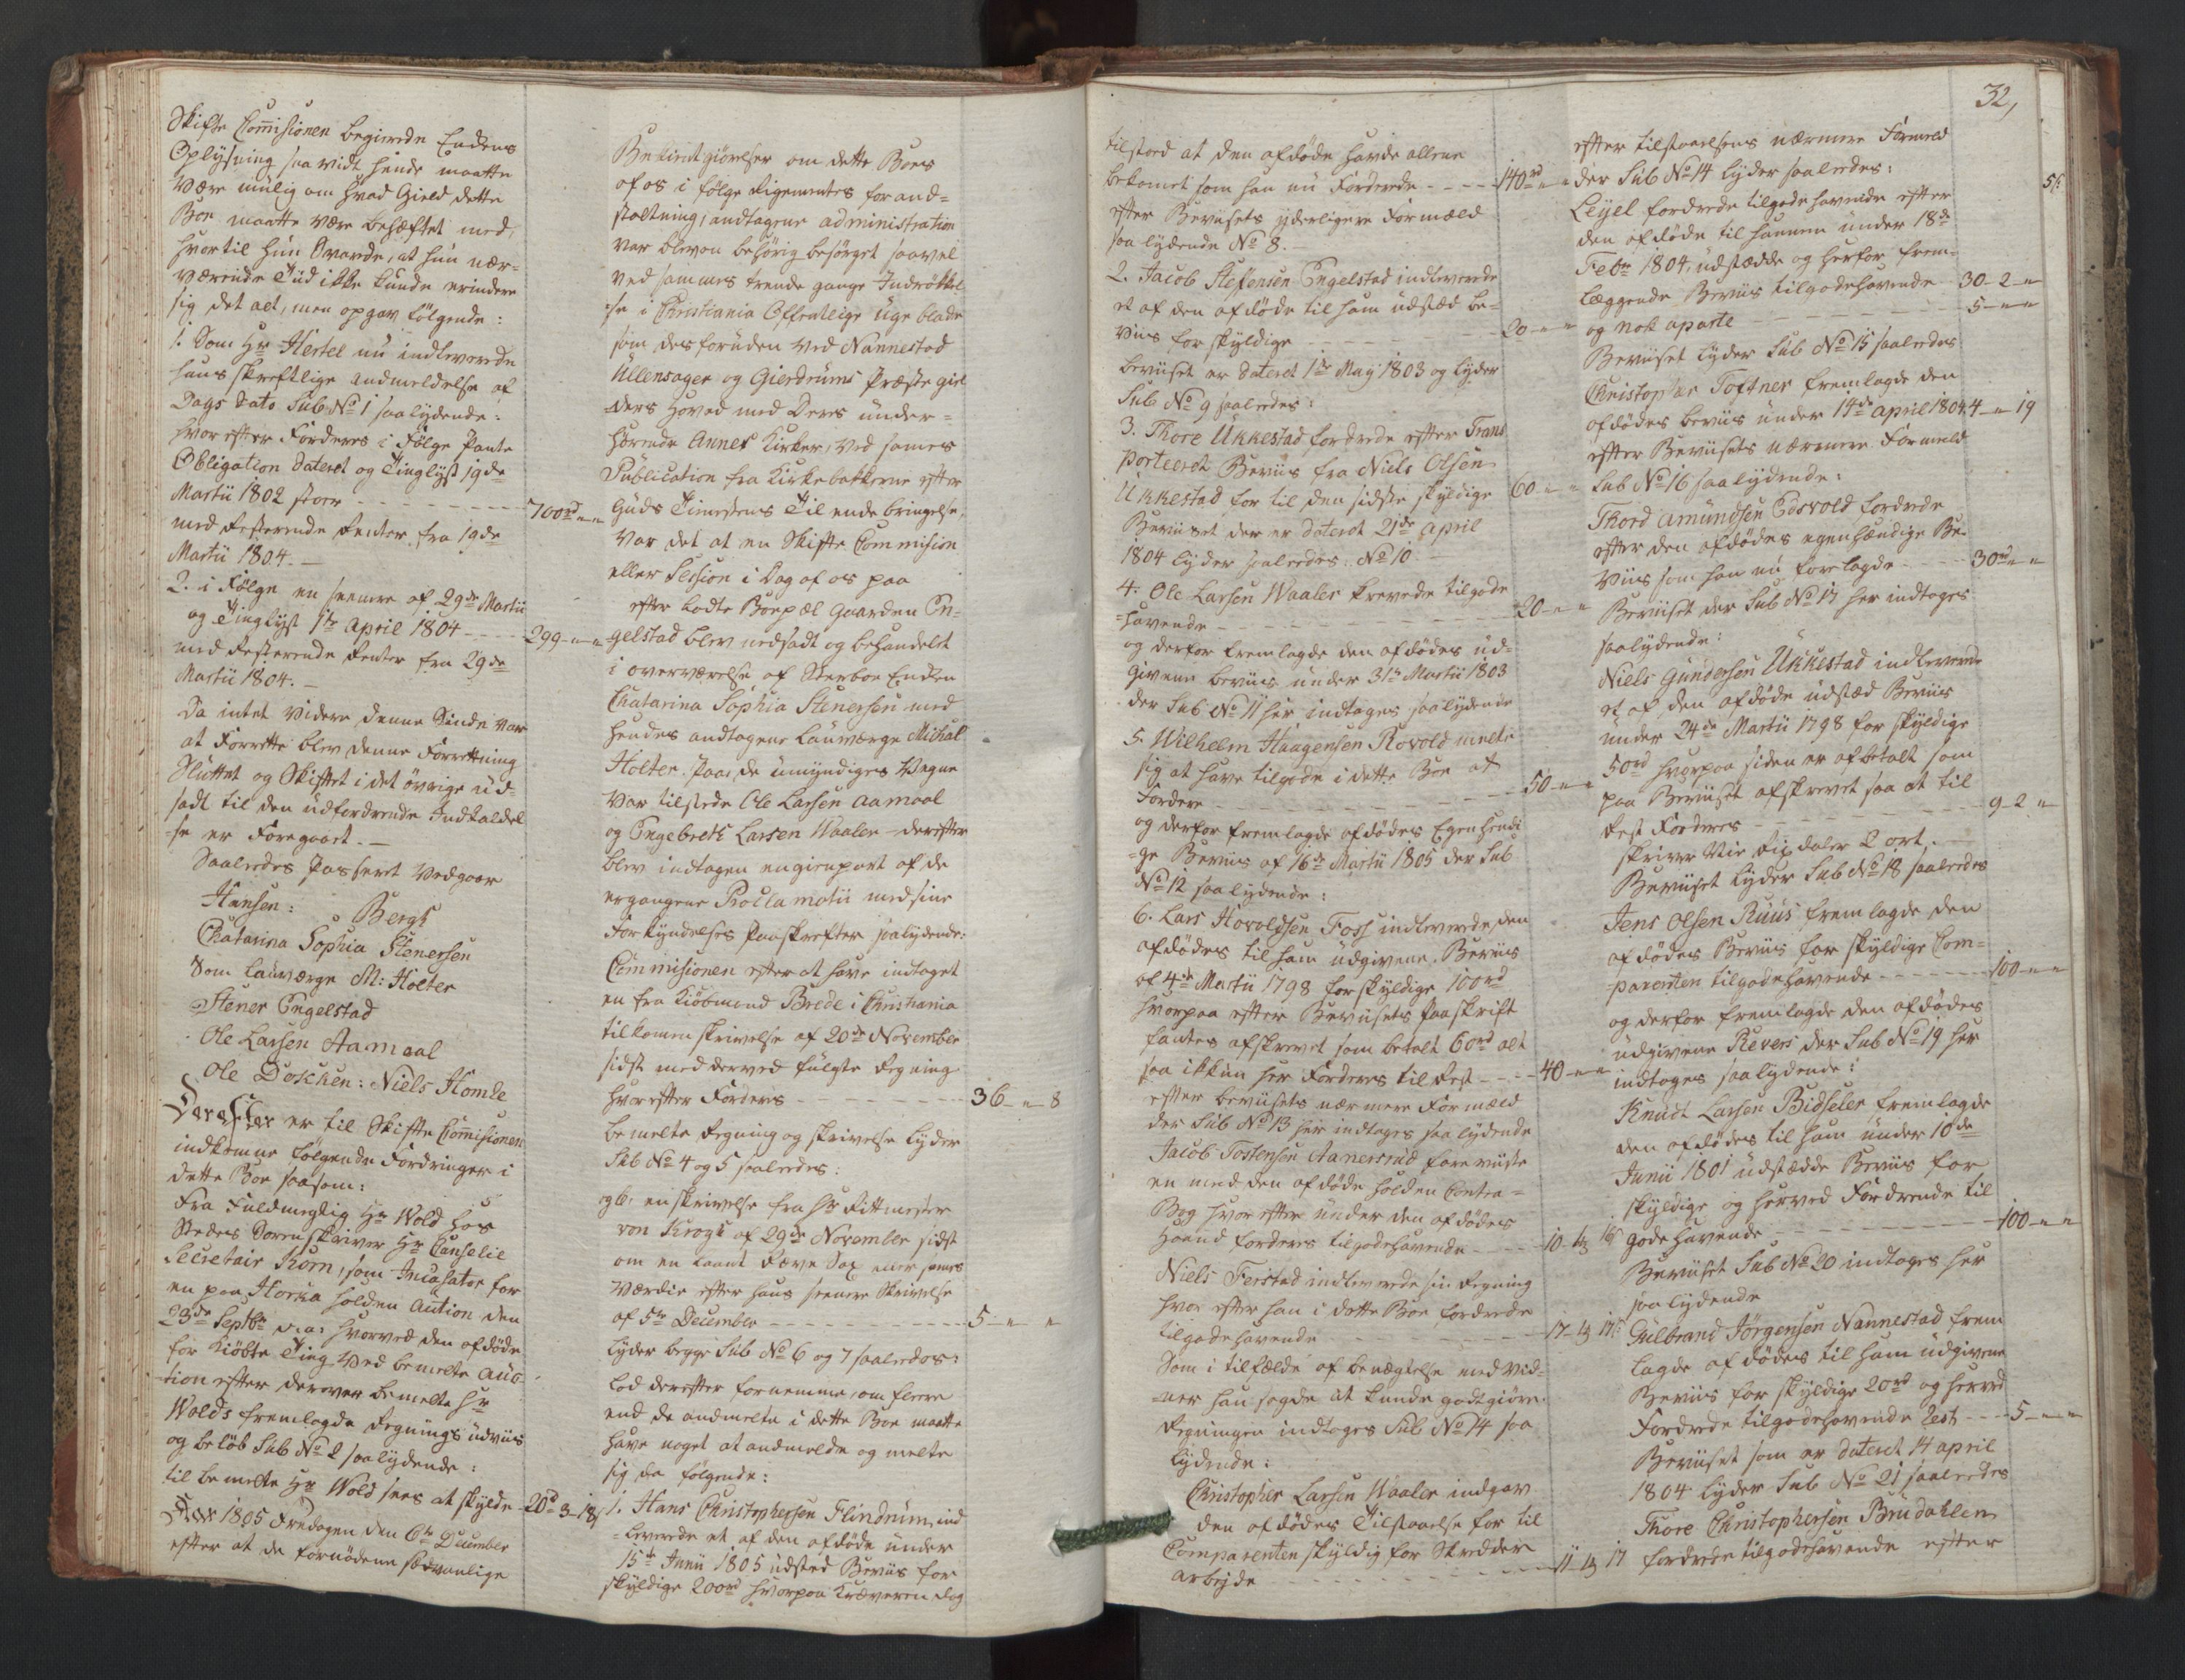 Skifte Commissionen begierede Enckens
Oplysning saa vidt hende maatte
være mulig om hvad Gield dette
Boe maatte være behæftet med,
hvortil hun svarede, at hun nær-
værende Tiid ikke kunde erindre
sig det alt, men opgav følgende:
1. Som Hr Hertel nu indleverede
hans skriftlige andmeldelse af
Dags dato Sub No 1 saalydende:
hvor efter Fordres i Følge Pante
Obligation dateret og Tinglyst 19de
Martii 1802 stoer - - - 700rd „ „
med resterende Renter fra 19de
Martii 1804. —
2. i Følge en seenere af 29de Martii
og Tinglyst 1te April 1804 - - - 299 „ „
med resterende Renter fra 29de
Martii 1804. —
Da intet videre denne Sinde var
at Forrette blev denne Forretning
Sluttet og Skiftet i det øvrige ud-
sadt til den udfordrende Indkaldel-
se er Foregaaet. —
Saaledes Passeret Vedgaar
Hansen: Bergh
Chatarina Sophia Stenersen
Som Lauværge M: Holter
Stener Engelstad
Ole Larsen Aamoal
Ole Doschen: Niels Homle
Derefter er til Skifte Commisionen
indkomne følgende Fordringer i
dette Boe saasom:
Fra Fuldmegtig Hr Wold hos
Stedets Sorenskriver Hr Canselie
Secretair Korn, som Incasator for
en paa Horka holden Aution den
23de Septbr d: a: hvorved den afdøde
har kiøbte Ting ved bemelte Auc-
tion efter derover bemelte Hr
Wolds fremlagde Regnings udviis
og beløb Sub No 2 saalydende:
til bemelte Hr Wold sees at skylde - 20rd 3 18
Aar 1805 Fredagen den 6te December
efter at de fornødene sædvanlige
Bekientgiørelser om dette Boes
af os i følge Rigemenntes forand-
staltning, andtagene administration
var bleven behørig besørget saavel
ved sammes trende gange Indrøkkel-
se i Christiania Offentlige Uge blade
som desforuden ved Nannestad
Ullensager og Gierdrums Præste giel
ders Hoved med Deres under-
hørende Annex Kirker, ved sames
Publication fra Kirkebakkerne efter
Guds Tienestens Til ende bringelse,
Var det at en Skifte Commision
eller Session i Dag af os paa
efter ladte Boepæl Gaarden En-
gelstad blev nedsadt og behandelt
i overværelse af Sterboe Encken
Chatarina Sophia Stenersen med
hendes andtagene Lauværge Michal
Holter. Paa de umyndiges Vegne
Var tilstede Ole Larsen Aamoal
og Engebreth Larsen Waaler — derefter
blev indtagen en gienpart af de
ergangene Procla motii med sine
Forkyndelses Paaskrefter saalydende:
Commisionen efter at have indtaget
en fra Kiøbmand Brede i Christiania
tilkomen skrivelse af 20de November
sidst med derved fulgte Regning
hvorefter Fordres - - - 36 „ 8
bemelte Regning og skrivelse lyder
Sub No 4 og 5 saaledes:
og en skrivelse fra Hr Ritmester
von Krogh af 29de November sidst
om en laant Ræve Sax eller sames
Værdie efter hans seenere Skrivelse
af 5te December - - - 5 „ „
lyder begge Sub No 6 og 7 saaledes:
Lod derefter fornemme, om fleere
end de andmelte i dette Boe maatte
have noget at andmelde og melte
sig da følgende:
1. Hans Christophersen Flindrum, ind
leverede et af den afdøde under
15de Junii 1805 udstæd Beviis for
skyldige 200rd hvorpaa Kræveren dog
32,
tilstoed at den afdøde havde allene
bekomet som han nu Fordrede - - - 140rd „ „
efter Beviisets yderligere Formæld
saa lydende No 8. —
2. Jacob Steffensen Engelstad indleverede
et af den afdøde til ham udstæd be-
viis for skyldige - - - 20 „ „
beviiset er dateret 1te May 1803 og lyder
Sub No 9 saaledes:
3. Thore Ukkestad fordrede efter Trans
porteret Beviis fra Niels Olsen
Ukkestad for til den sidste skyldige 60 „ „
Beviiset der er dateret 21de April
1804 lyder saaledes: No 10. —
4. Ole Larsen Waaler krevede tilgode
havende - - - 20 „ „
og derfor fremlagde den afdødes ud-
givene beviis under 31te Martii 1803
der Sub No 11 her indtages saalydende
5. Wilhelm Haagensen Rovold melte
sig at have tilgode i dette Boe at
Fordre - - - 50 „ „
og derfor fremlagde afdødes Egenhendi
ge Beviis af 16de Martii 1805 der Sub
No 12 saalydende:
6. Lars Hovoldsen Foss indleverede, den
afdødes til ham udgivene Beviis
af 4de Martii 1798 for skyldige 100rd
hvorpaa efter Beviisets Paaskrift
fantes afskrevet som betalt 60rd alt
saa ikkun her Fordres til Rest - - - 40 „ „
efter beviisets nærmere Formæld
der Sub No 13 her indtages saa lydende
Jacob Tostensen Aanerrud foreviiste
en med den afdøde holden Contra-
Bog hvor efter under den afdødes
Haand fordres tilgodehavende - - - 10 „ 16
Niels Ferstad indleverede sin Regning
hvor efter han i dette Boe fordrede
tilgodehavende - - - 17
Som i tilfælde af benægtelse med Vid-
ner han sagde at kunde godtgiøre.
Regningen indtages Sub No 14 saa
lydende:
Christopher Larsen Waaler indgav
den afdødes Tilstaaelse for til
Comparenten skyldig for Skredder
arbeyde - - - 11 17
efter tilstaaelsens nærmere Formeld
der Sub No 14 lyder saaledes:
Leyel fordrede tilgodehavende efter
den afdøde til hannem under 18de
Febr 1804, udstædde og herfor frem-
læggende Beviis tilgodehavende 30 - 2 - „
og nok aparte - - - 5 „ „
Beviiset lyder Sub No 15 saaledes
Christopher Toftner fremlagde den
afdødes beviis under 14de April 1804 4 „ 19
efter Beviisets nærmere Formeld
Sub No 16 saalydende:
Thord Amundsen Edsvold fordrede
efter den afdødes egenhændige Be-
viis som han nu forelagde - - - 30rd „ „
Beviiset der Sub No 17 her indtages
saalydende:
Niels Gundersen Ukkestad indleverede
et af den afdøde udstæd Beviis
under 24de Martii 1798 for skyldige
50rd hvorpaa siden er afbetalt som
paa Beviiset afskrevet saa at til
Rest Fordres - - - 9 - 2 „
skriver Nie Rixdaler 2 ort. —
Beviiset lyder Sub No 18 saaledes
Jens Olsen Ruus fremlagde den
afdødes Beviis for skyldige Com-
parenten tilgodehavende - - - 100 „ „
og derfor fremlagde den afdødes
udgivene Revers der Sub No 19 her
indtages saalydende:
Knudt Larsen Bidseler fremlagde
den afdødes til ham under 10de
Junii 1801 udstædde Beviis for
skyldige og herved Fordrende til
gode havende - - - 100 „ „
Beviiset Sub No 20 indtages her
saalydende
Gulbrand Jörgensen Nannestad frem
lagde afdødes til ham udgivene
Beviis for skyldige 20rd og herved
Fordrede tilgodehavende Rest - - - 5 „ „
Beviiset som er dateret 14 April
1804 lyder Sub No 21 saaledes
Thore Christophersen Brudahlen
fordrede tilgodehavende efter